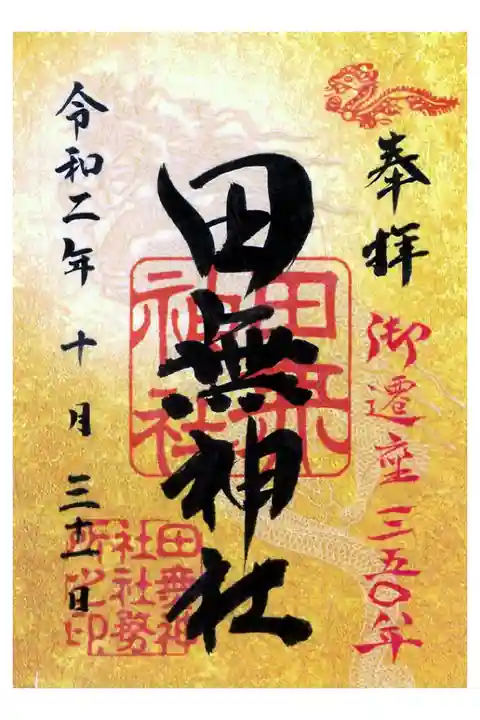 奉拝
御遷座三五〇年
田無神社
田無
神社
令和二年十月三十一日
田無神
社社務
所之印